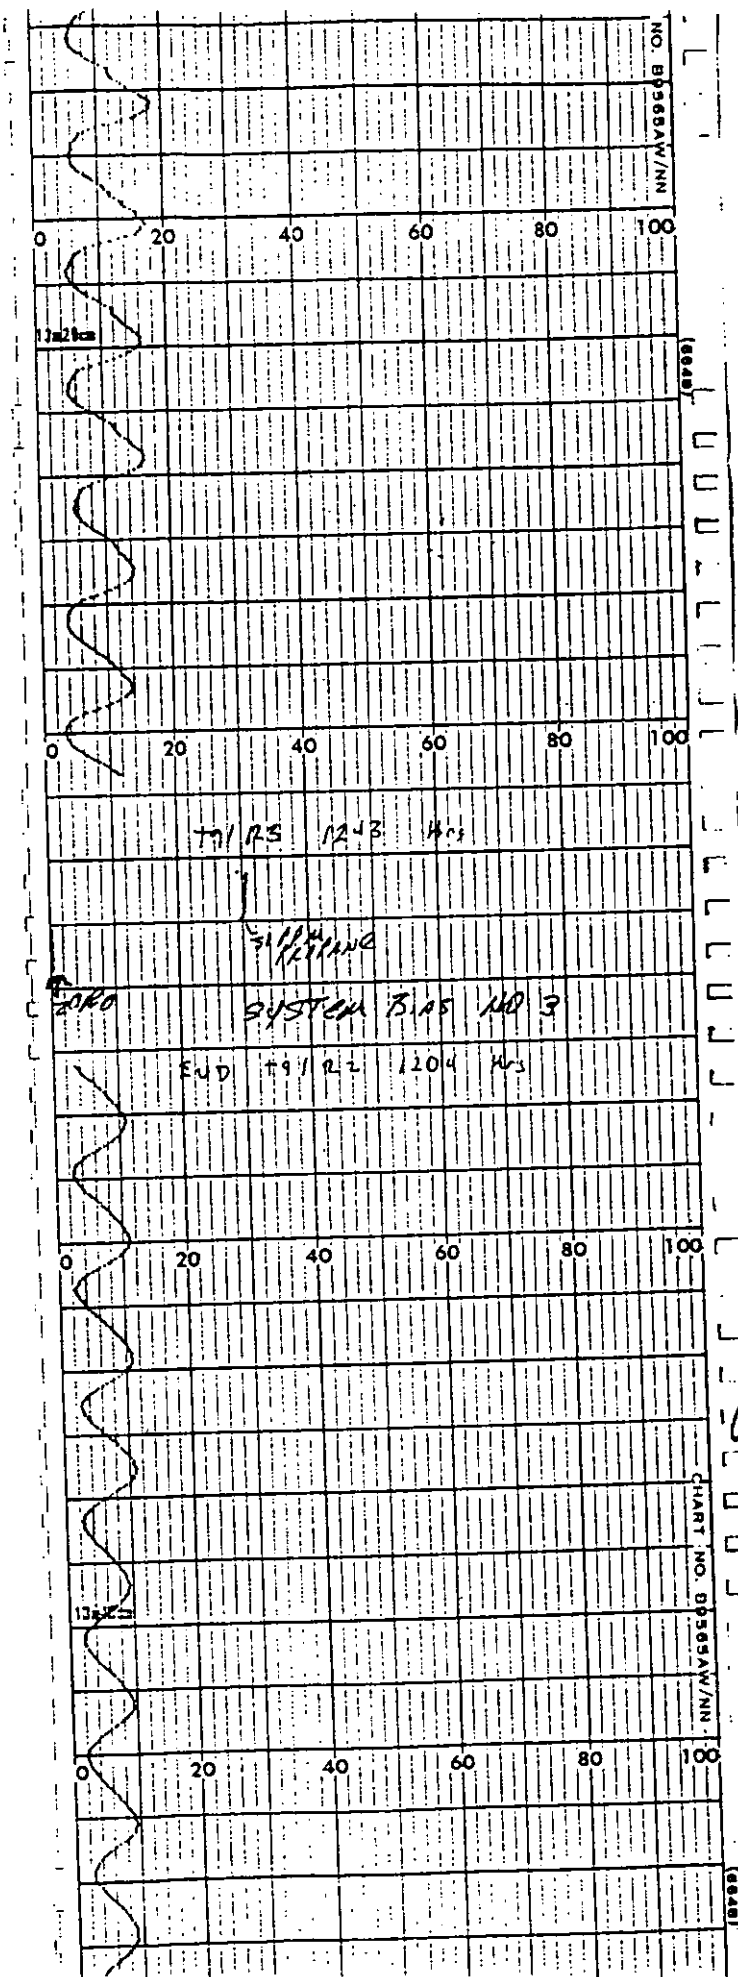 NO. B9565AW/NN
0 20 40 60 80 100
(6648)
0 20 40 60 80 100
T91 R3 1243 Hrs
PROPANE
ZERO
SYSTEM BIAS NO 3
END T91 R2 1204 Hrs
0 20 40 60 80 100
CHART NO. B9565AW/NN
0 20 40 60 80 100
(6648)